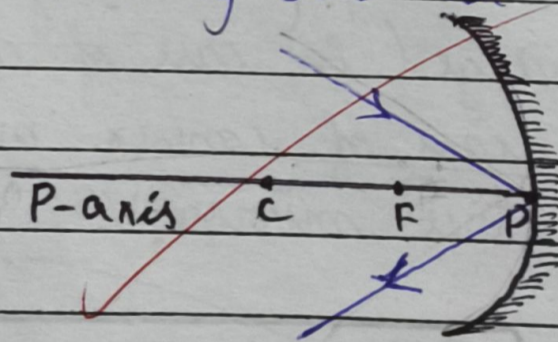 P-axis C F P